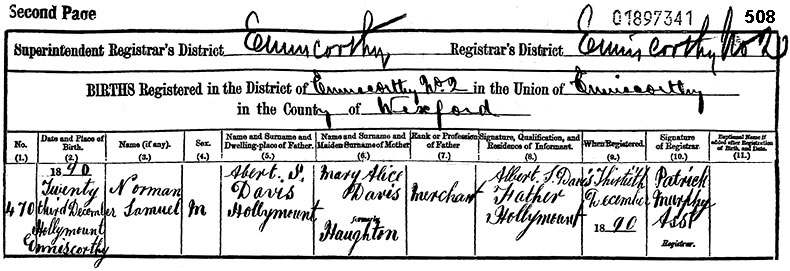 Second Page 01897341 508
Superintendent Registrar's District Enniscorthy Registrar's District Enniscorthy No 2
BIRTHS Registered in the District of Enniscorthy No. 2 in the Union of Enniscorthy
in the County of Wexford
No. Date and Place of Birth. Name (if any). Sex. Name and Surname and Dwelling-place of Father. Name and Surname and Maiden Surname of Mother Rank or Profession of Father Signature, Qualification, and Residence of Informant. When Registered. Signature of Registrar. Baptismal Name if added after Registration of Birth, and Date.
(1.) (2.) (3.) (4.) (5.) (6.) (7.) (8.) (9.) (10.) (11.)
470
1890
Twenty
third December
Hollymount
Enniscorthy
Norman
Samuel
M
Abert S.
Davis
Hollymount
Mary Alice
Davis
formerly
Haughton
Merchant
Albert S. Davis
Father
Hollymount
Thirtieth
December
1890
Patrick
Murphy
Asst
Registrar.